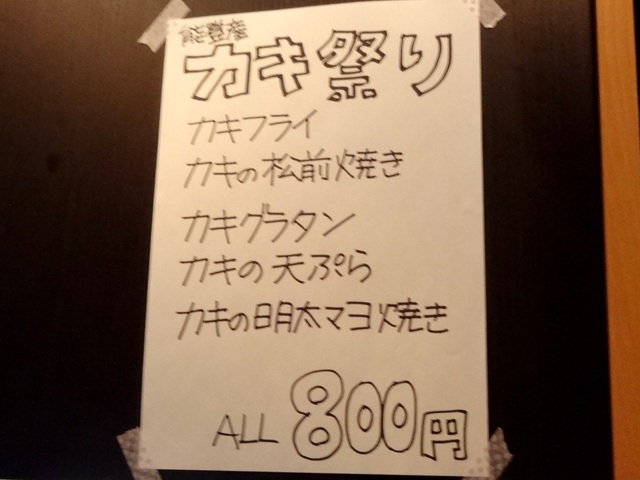 能登産
カキ祭り
カキフライ
カキの松前焼き
カキグラタン
カキの天ぷら
カキの明太マヨ焼き
ALL 800円